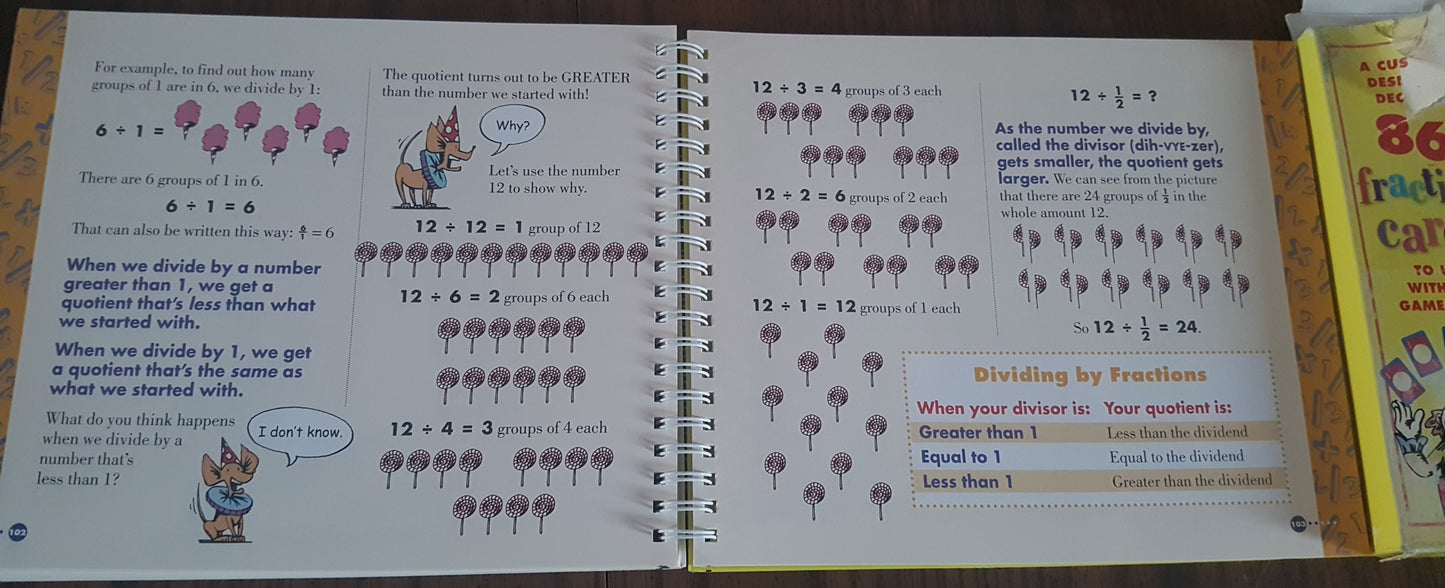 For example, to find out how many
groups of 1 are in 6, we divide by 1:
6 ÷ 1 =
There are 6 groups of 1 in 6.
6 ÷ 1 = 6
That can also be written this way: 6/1 = 6
When we divide by a number
greater than 1, we get a
quotient that's less than what
we started with.
When we divide by 1, we get
a quotient that's the same as
what we started with.
What do you think happens
when we divide by a
number that's
less than 1?
I don't know.
102
The quotient turns out to be GREATER
than the number we started with!
Why?
Let's use the number
12 to show why.
12 ÷ 12 = 1 group of 12
12 ÷ 6 = 2 groups of 6 each
12 ÷ 4 = 3 groups of 4 each
12 ÷ 3 = 4 groups of 3 each
12 ÷ 2 = 6 groups of 2 each
12 ÷ 1 = 12 groups of 1 each
12 ÷ 1/2 = ?
As the number we divide by,
called the divisor (dih-VYE-zer),
gets smaller, the quotient gets
larger. We can see from the picture
that there are 24 groups of 1/2 in the
whole amount 12.
So 12 ÷ 1/2 = 24.
Dividing by Fractions
When your divisor is: Your quotient is:
Greater than 1 Less than the dividend
Equal to 1 Equal to the dividend
Less than 1 Greater than the dividend
103
A CUS
DESI
DEC
86
fracti
car
TO U
WITH
GAME